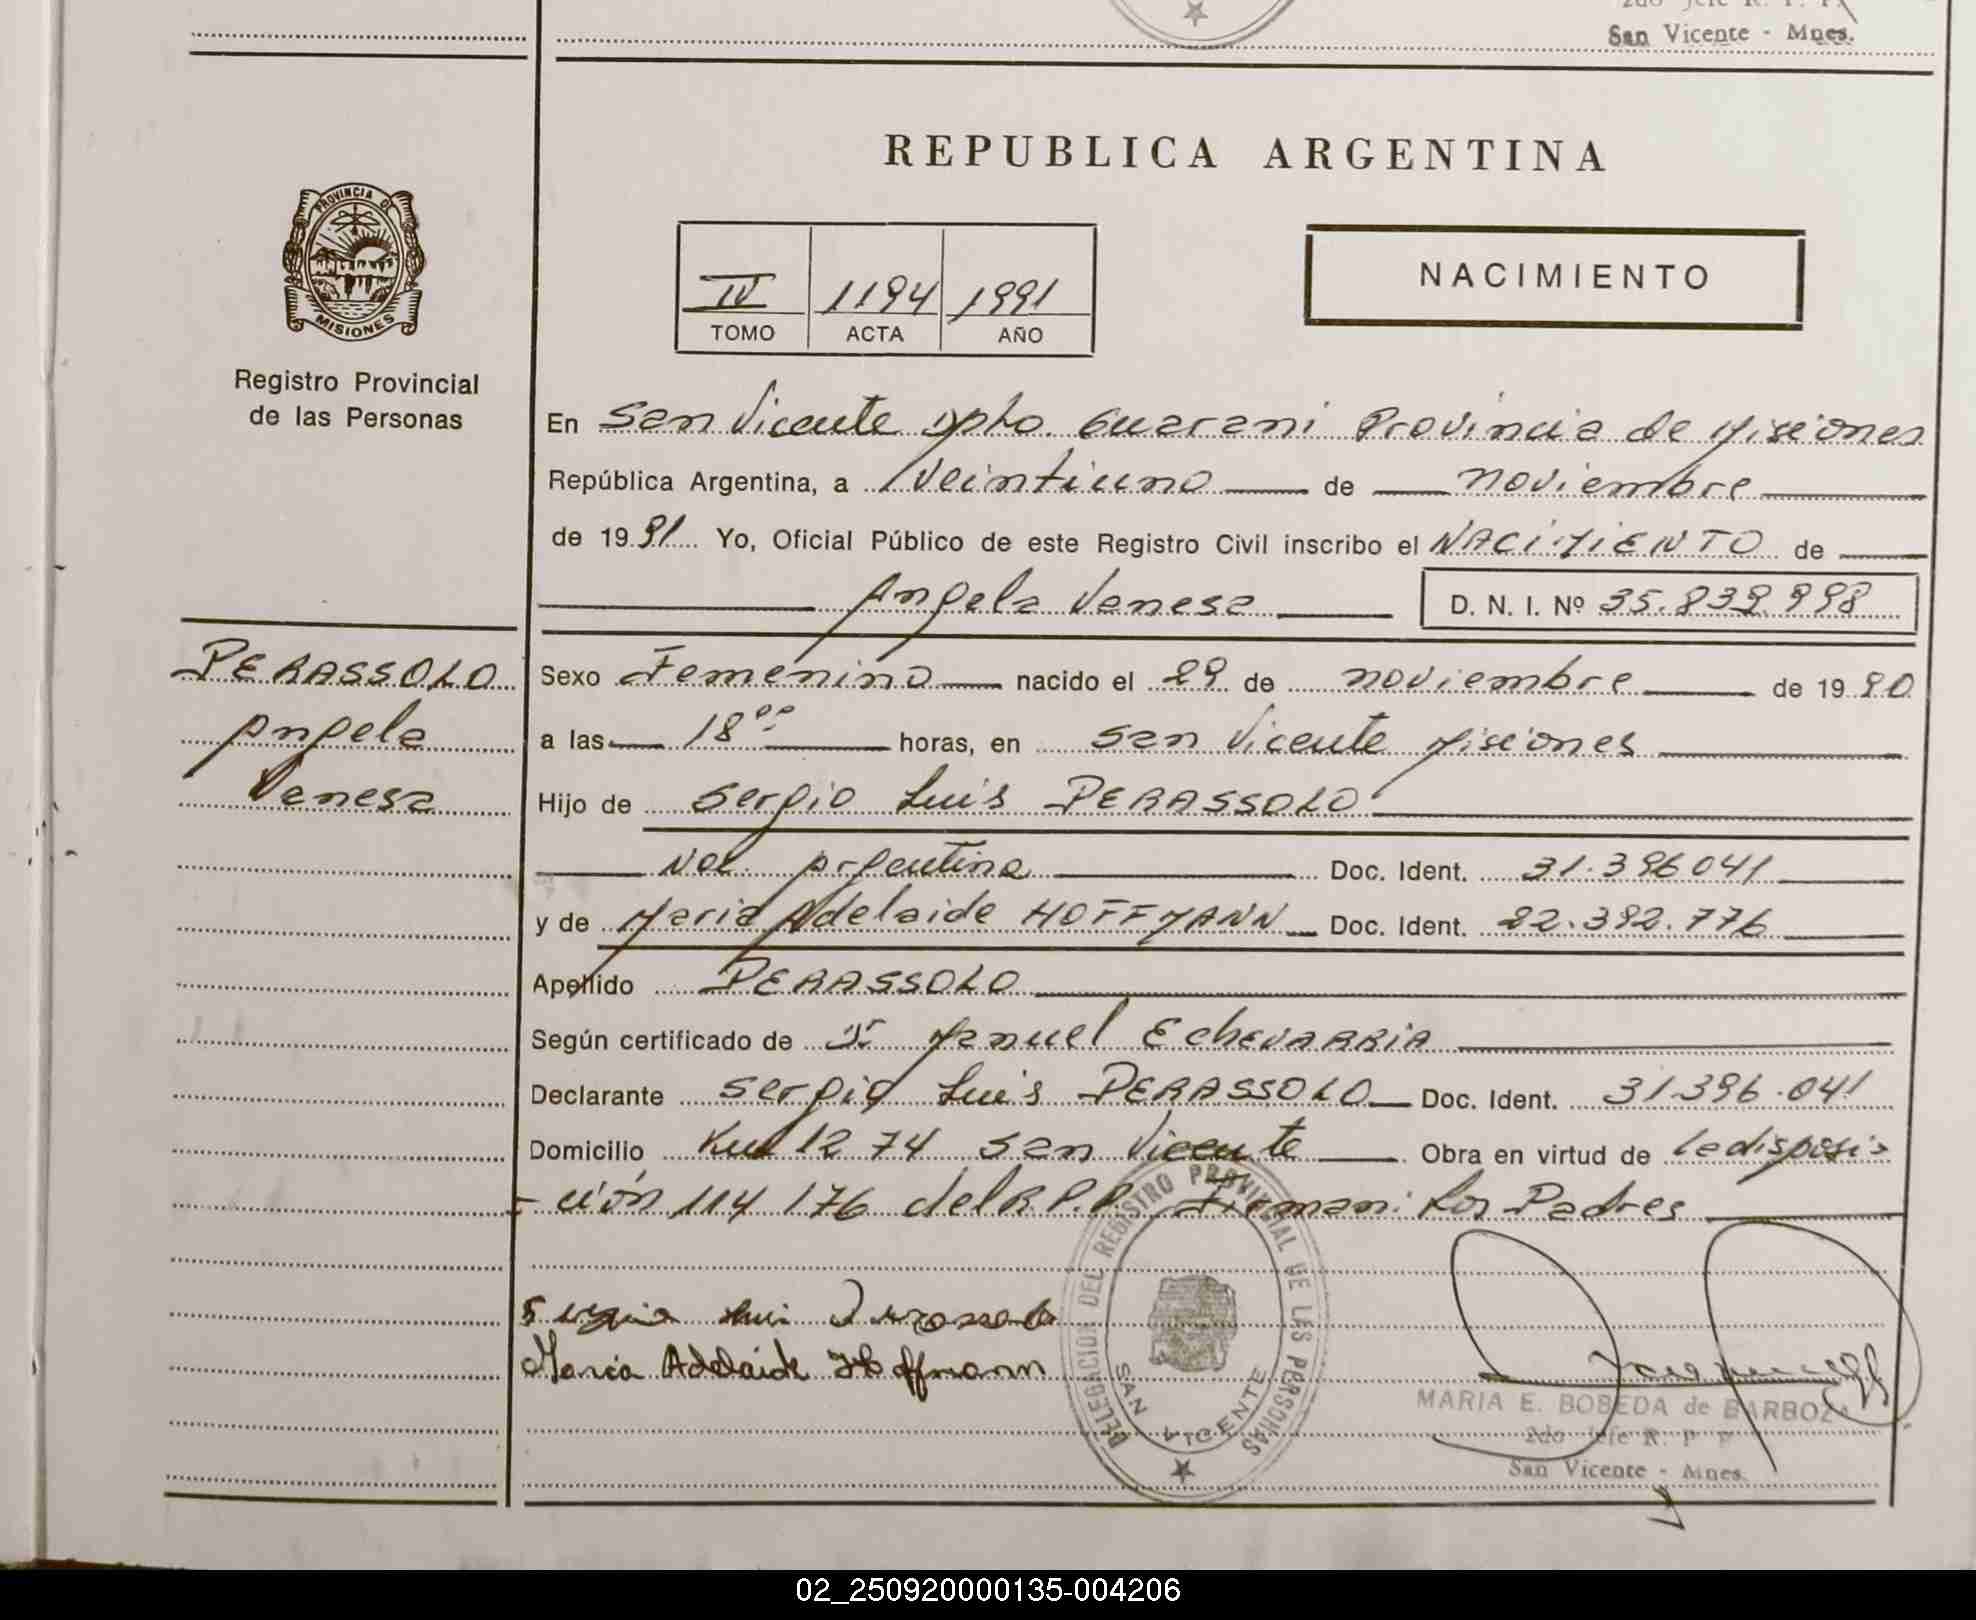 San Vicente - Mnes.
REPUBLICA ARGENTINA
PROVINCIA DE
MISIONES
Registro Provincial
de las Personas
IV 1194 1991
TOMO ACTA AÑO
NACIMIENTO
En San Vicente Dpto. Guarani Provincia de Misiones
República Argentina, a Veintiuno de noviembre
de 1991 Yo, Oficial Público de este Registro Civil inscribo el NACIMIENTO de
Angela Vanesa D. N. I. Nº 35.839.998
PERASSOLO
Angela
Vanesa
Sexo Femenino nacido el 29 de noviembre de 1990
a las 18⁰⁰ horas, en San Vicente Misiones
Hijo de Sergio Luis PERASSOLO
Nac. Argentina Doc. Ident. 31.396041
y de Maria Adelaide HOFFMANN Doc. Ident. 22.392.776
Apellido PERASSOLO
Según certificado de Manuel EchevARRIA
Declarante Sergio Luis PERASSOLO Doc. Ident. 31.396.041
Domicilio Km 1274 San Vicente Obra en virtud de la disposi-
-ción 114/76 del R.P.P. Firman: Los Padres
Sergio Luis Perassolo
Maria Adelaide Hoffmann
DELEGACION DEL REGISTRO PROVINCIAL DE LAS PERSONAS
SAN VICENTE
MARIA E. BOBEDA de BARBOZA
2do Jefe R. P. P.
San Vicente - Mnes.
02_250920000135-004206